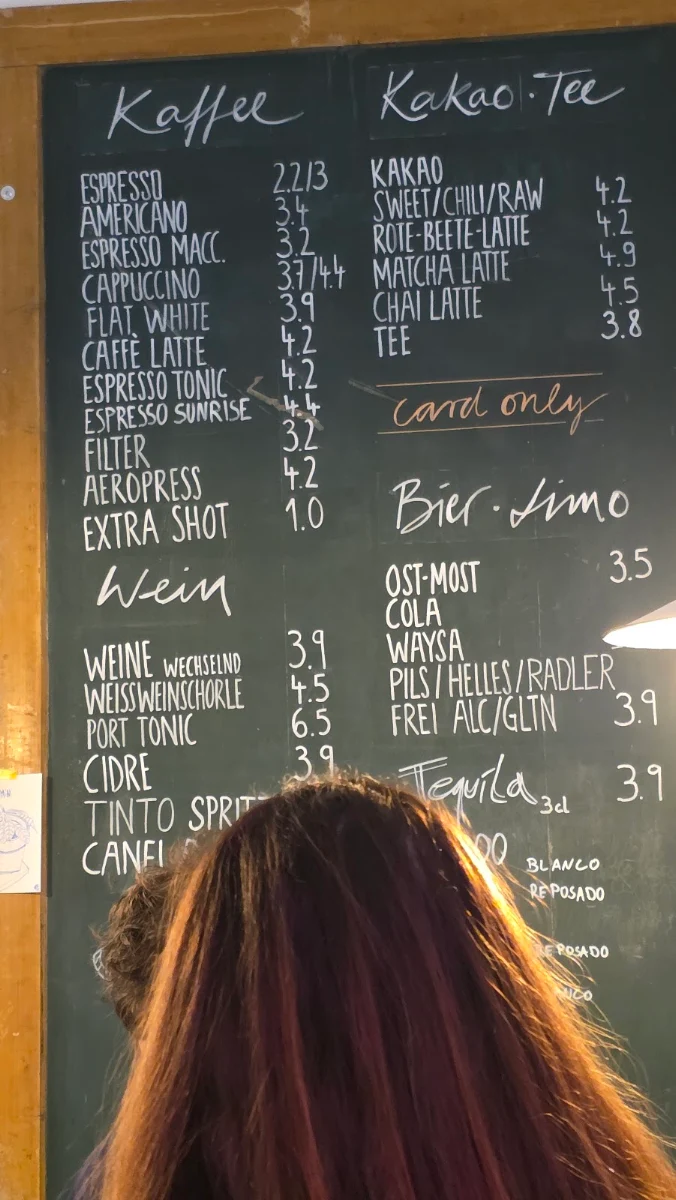 Kaffee
ESPRESSO 2.2/3
AMERICANO 3.4
ESPRESSO MACC. 3.2
CAPPUCCINO 3.7/4.4
FLAT WHITE 3.9
CAFFÈ LATTE 4.2
ESPRESSO TONIC 4.2
ESPRESSO SUNRISE 4.4
FILTER 3.2
AEROPRESS 4.2
EXTRA SHOT 1.0
Wein
WEINE WECHSELND 3.9
WEISSWEINSCHORLE 4.5
PORT TONIC 6.5
CIDRE 3.9
TINTO SPRITZ
Kakao · Tee
KAKAO
SWEET/CHILI/RAW 4.2
ROTE-BEETE-LATTE 4.2
MATCHA LATTE 4.9
CHAI LATTE 4.5
TEE 3.8
card only
Bier · Limo
OST-MOST 3.5
COLA
WAYSA
PILS/HELLES/RADLER
FREI ALC/GLTN 3.9
Tequila 3cl 3.9
BLANCO
REPOSADO
REPOSADO